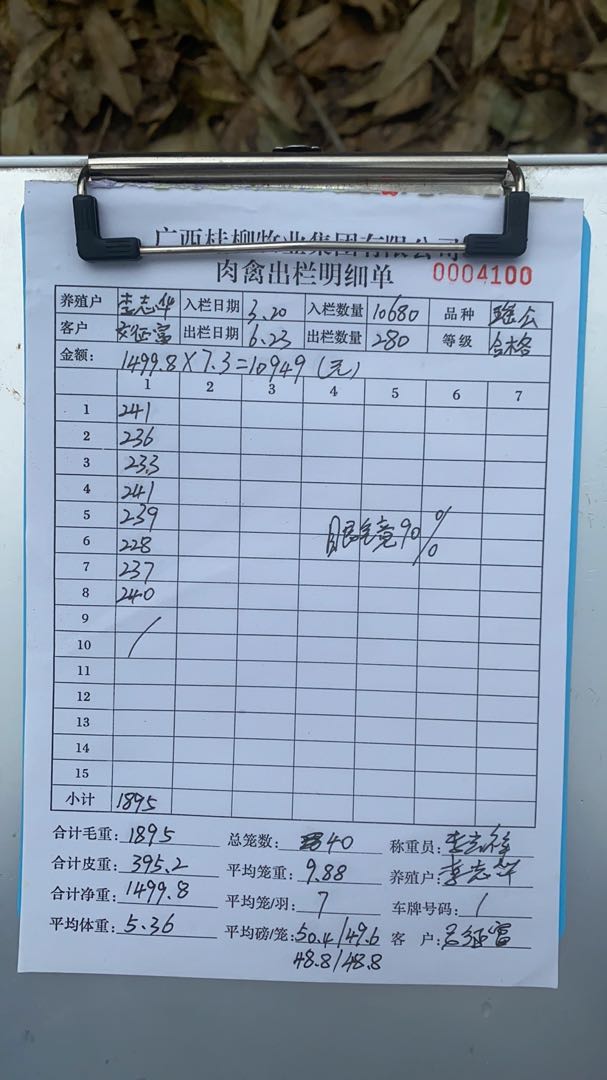 广西桂柳牧业集团有限公司
肉禽出栏明细单 0004100
养殖户 李志华 入栏日期 3.20 入栏数量 10680 品种 瑶公
客户 征富 出栏日期 6.23 出栏数量 280 等级 合格
金额: 1499.8×7.3=10949(元)
1 2 3 4 5 6 7
1 241
2 236
3 233
4 241
5 239 眼镜90%
6 228
7 237
8 240
9
10 /
11
12
13
14
15
小计 1895
合计毛重: 1895 总笼数: 40 称重员: 李志
合计皮重: 395.2 平均笼重: 9.88 养殖户: 李志华
合计净重: 1499.8 平均笼/羽: 7 车牌号码: /
平均体重: 5.36 平均磅/笼: 50.4/49.6 客 户: 征富
48.8/48.8